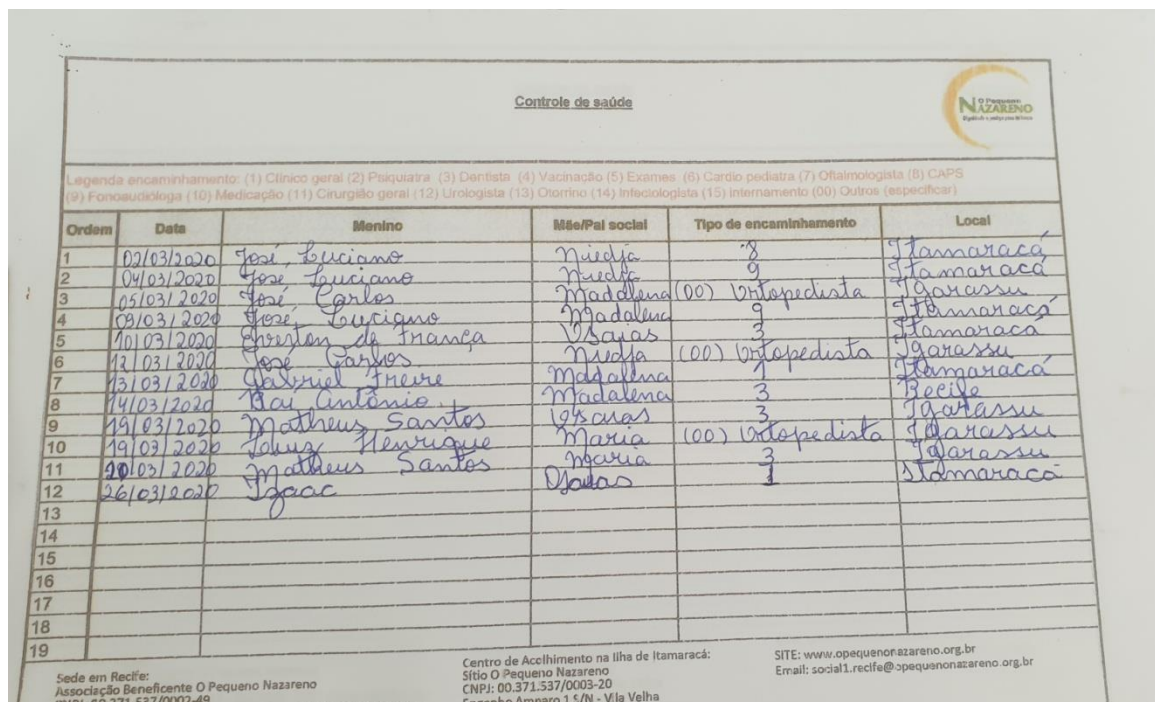 Controle de saúde
O Pequeno
NAZARENO
Legenda encaminhamento: (1) Clínico geral (2) Psiquiatra (3) Dentista (4) Vacinação (5) Exames (6) Cardio pediatra (7) Oftalmologista (8) CAPS
(9) Fonoaudiologa (10) Medicação (11) Cirurgião geral (12) Urologista (13) Otorrino (14) Infectologista (15) Internamento (00) Outros (especificar)
Ordem Data Menino Mãe/Pai social Tipo de encaminhamento Local
1 02/03/2020 José Luciano Niedja 8 Itamaracá
2 04/03/2020 José Luciano Niedja 9 Itamaracá
3 05/03/2020 José Carlos Madalena (00) Ortopedista Igarassu
4 09/03/2020 José Luciano Madalena 9 Itamaracá
5 10/03/2020 de França 3 Itamaracá
6 12/03/2020 José Carlos Niedja (00) Ortopedista Igarassu
7 13/03/2020 Gabriel Freire Madalena 1 Itamaracá
8 14/03/2020 Antônio Madalena 3 Recife
9 19/03/2020 Matheus Santos 3 Igarassu
10 19/03/2020 Henrique Maria (00) Ortopedista Igarassu
11 20/03/2020 Matheus Santos Maria 3 Igarassu
12 26/03/2020 Izaac 1 Itamaracá
13
14
15
16
17
18
19
Sede em Recife:
Associação Beneficente O Pequeno Nazareno
Centro de Acolhimento na Ilha de Itamaracá:
Sítio O Pequeno Nazareno
CNPJ: 00.371.537/0003-20
Engenho Amparo 1 S/N - Vila Velha
SITE: www.opequenonazareno.org.br
Email: social1.recife@opequenonazareno.org.br